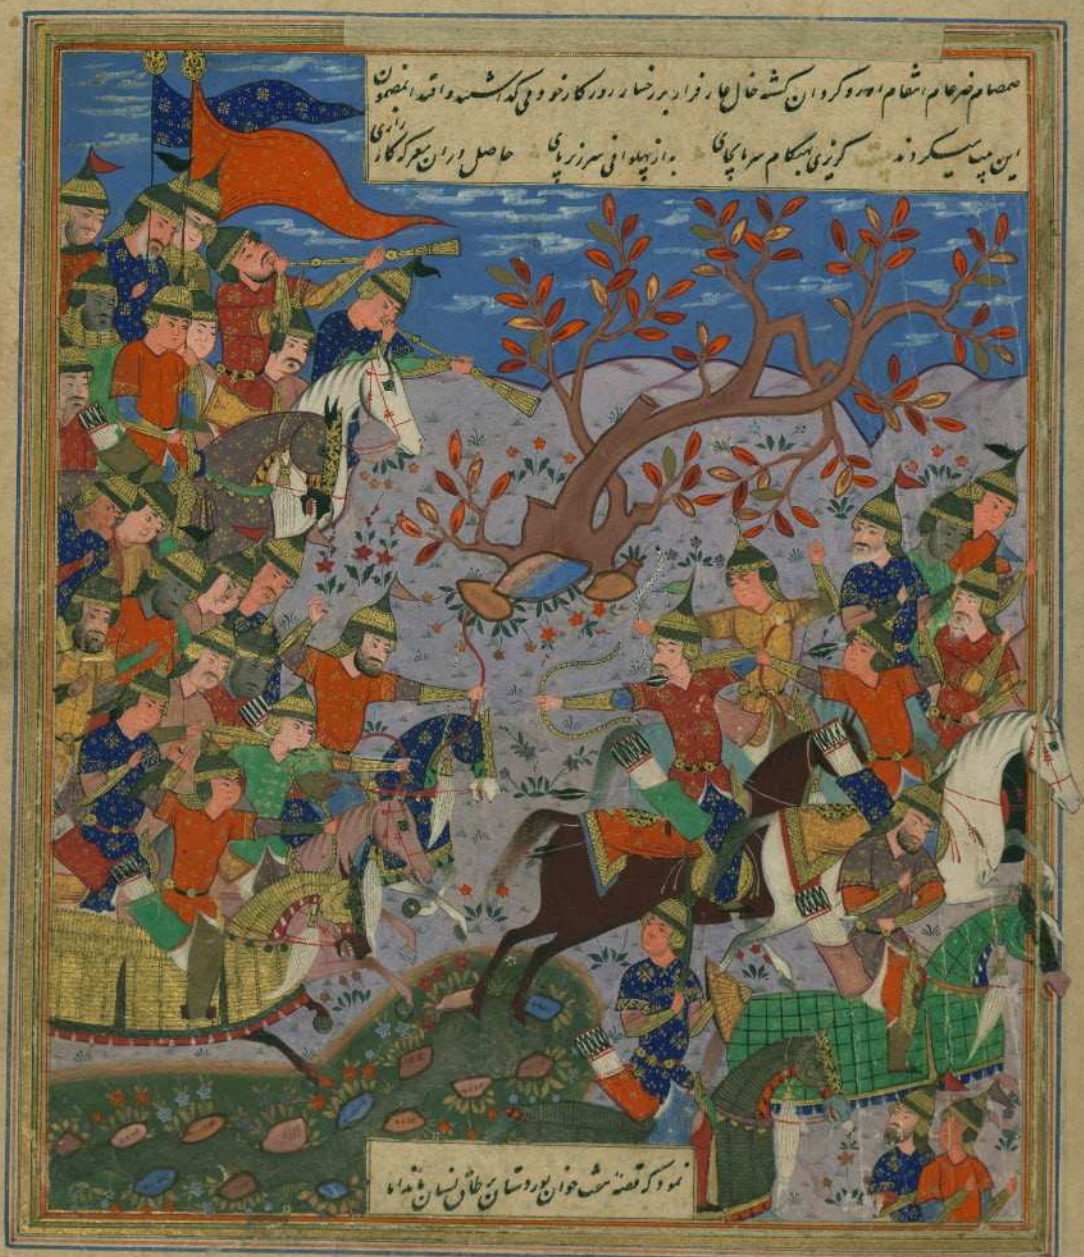 صمصام ضرغام انتقام او رو کردان کشته خال عار فرار بر رخسار روزگار خود می گذاشتند و اقتدا بمضمون
این میکردند گریزی بهنگام سر بجای به از پهلوانی سر زیر پای حاصل دران معرکه کارزاری
نمود که قصه هفت خوان پور دستان بر طاق نسیان ماند اما